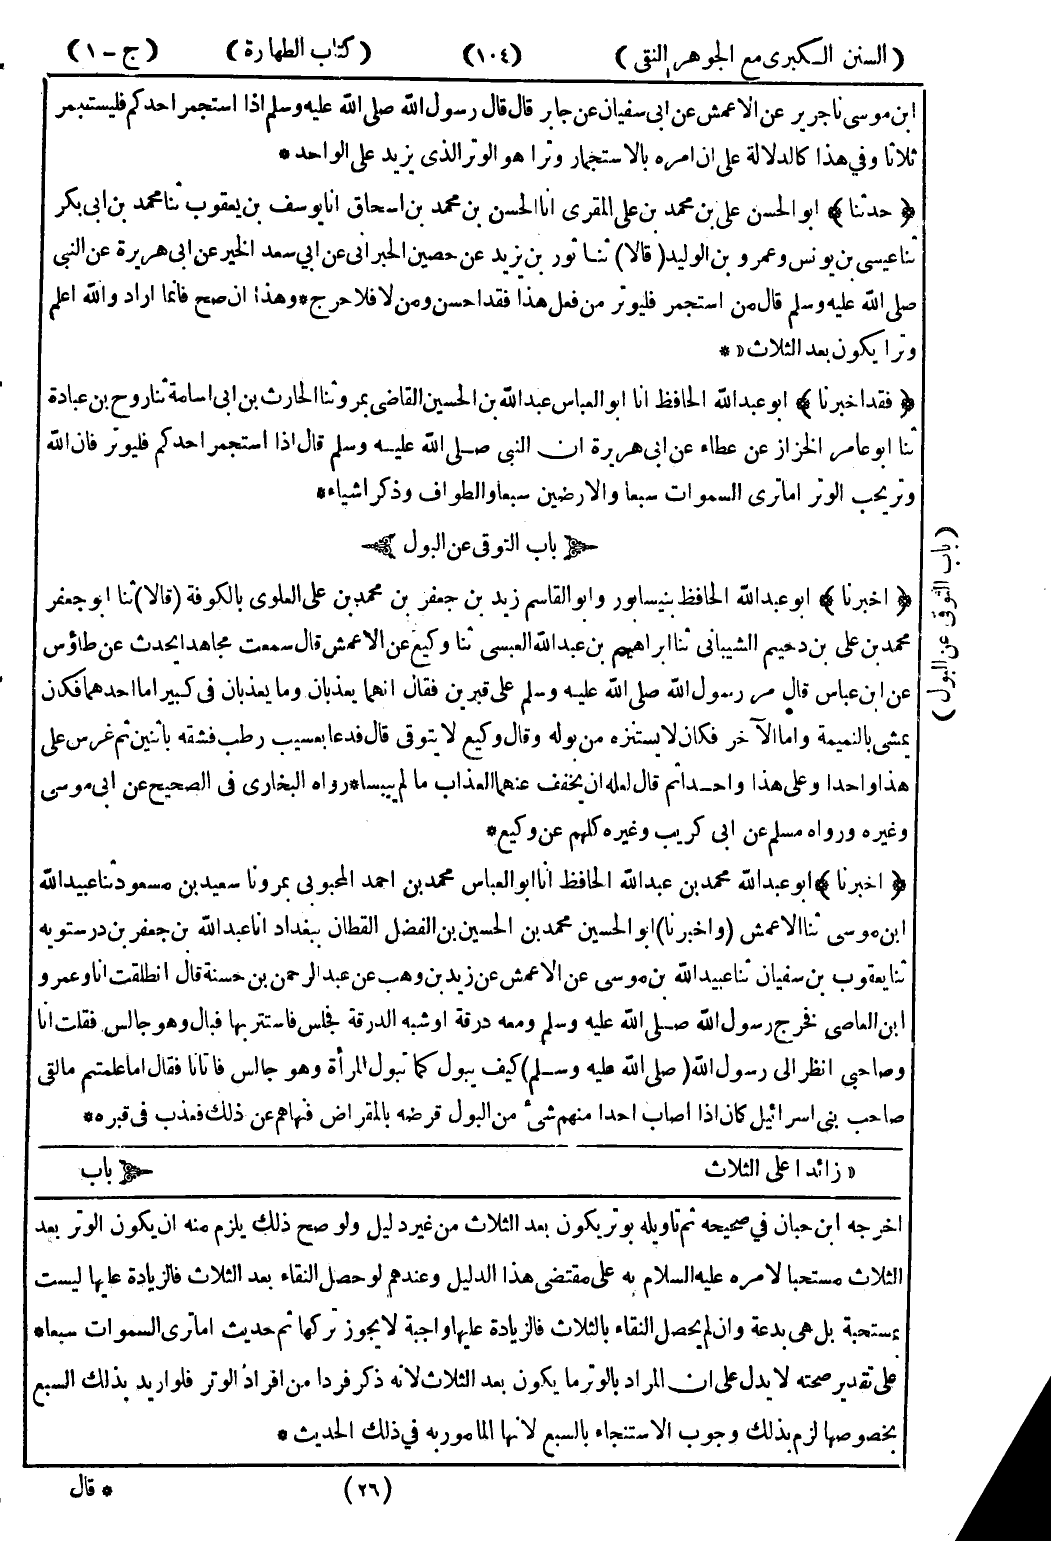 ( السنن الكبرى مع الجوهر النقى ) (١٠٤) ( كتاب الطهارة ) ( ج - ١ )
ابن موسى نا جرير عن الاعمش عن ابى سفيان عن جابر قال قال رسول الله صلى الله عليه وسلم اذا استجمر احدكم فليستجمر
ثلاثا وفي هذا كالدلالة على ان امره بالاستجمار وترا هو الوتر الذى يزيد على الواحد *
﴿ حدثنا ﴾ ابو الحسن على بن محمد بن على المقرى انا الحسن بن محمد بن اسحاق انا يوسف بن يعقوب ثنا محمد بن ابى بكر
ثنا عيسى بن يونس وعمرو بن الوليد ( قالا ) ثنا ثور بن يزيد عن حصين الحبرانى عن ابي سعد الخير عن ابى هريرة عن النبى
صلى الله عليه وسلم قال من استجمر فليوتر من فعل هذا فقد احسن ومن لا فلا حرج * وهذا ان صح فانما اراد والله اعلم
وترا يكون بعد الثلاث « *
﴿ فقد اخبرنا ﴾ ابو عبد الله الحافظ انا ابو العباس عبد الله بن الحسين القاضى بمرو ثنا الحارث بن ابى اسامة ثنا روح بن عبادة
ثنا ابو عامر الخزاز عن عطاء عن ابى هريرة ان النبى صلى الله عليه وسلم قال اذا استجمر احدكم فليوتر فان الله
وتر يحب الوتر اما ترى السموات سبعا والارضين سبعا والطواف وذكر اشياء *
باب التوقى عن البول
﴿ اخبرنا ﴾ ابو عبد الله الحافظ بنيسابور وابو القاسم زيد بن جعفر بن محمد بن على العلوى بالكوفة ( قالا ) ثنا ابو جعفر
محمد بن على بن دحيم الشيبانى ثنا ابراهيم بن عبد الله العبسى ثنا وكيع عن الاعمش قال سمعت مجاهدا يحدث عن طاؤس
عن ابن عباس قال مر رسول الله صلى الله عليه وسلم على قبرين فقال انهما يعذبان وما يعذبان فى كبير اما احدهما فكان
يمشى بالنميمة واما الآخر فكان لا يستنزه من بوله وقال وكيع لا يتوقى قال فدعا بعسيب رطب فشقه باثنين ثم غرس على
هذا واحدا وعلى هذا واحدا ثم قال لعله ان يخفف عنهما العذاب ما لم ييبسا * رواه البخارى فى الصحيح عن ابى موسى
وغيره ورواه مسلم عن ابى كريب وغيره كلهم عن وكيع *
﴿ اخبرنا ﴾ ابو عبد الله محمد بن عبد الله الحافظ انا ابو العباس محمد بن احمد المحبوبى بمرو نا سعيد بن مسعود ثنا عبيد الله
ابن موسى ثنا الاعمش ( واخبرنا ) ابو الحسين محمد بن الحسين بن الفضل القطان ببغداد انا عبد الله بن جعفر بن درستويه
ثنا يعقوب بن سفيان ثنا عبيد الله بن موسى عن الاعمش عن زيد بن وهب عن عبد الرحمن بن حسنة قال انطلقت انا وعمرو
ابن العاصى فخرج رسول الله صلى الله عليه وسلم ومعه درقة او شبه الدرقة فجلس فاستتر بها فبال وهو جالس فقلت انا
وصاحبى انظر الى رسول الله ( صلى الله عليه وسلم ) كيف يبول كما تبول المرأة وهو جالس فاتانا فقال اما علمتم ما لقى
صاحب بنى اسرائيل كان اذا اصاب احدا منهم شىء من البول قرضه بالمقراض فنهاهم عن ذلك فعذب فى قبره *
« زائدا على الثلاث باب
اخرجه ابن حبان في صحيحه ثم تاويله بوتر يكون بعد الثلاث من غير دليل ولو صح ذلك يلزم منه ان يكون الوتر بعد
الثلاث مستحبا لامره عليه السلام به على مقتضى هذا الدليل وعندهم لو حصل النقاء بعد الثلاث فالزيادة عليها ليست
مستحبة بل هى بدعة وان لم يحصل النقاء بالثلاث فالزيادة عليها واجبة لا يجوز تركها ثم حديث اما ترى السموات سبعا *
على تقدير صحته لا يدل على ان المراد بالوتر ما يكون بعد الثلاث لانه ذكر فردا من افراد الوتر فلو اريد بذلك السبع
بخصوصها لزم بذلك وجوب الاستنجاء بالسبع لانها المامور به في ذلك الحديث *
(٢٦) * قال
( باب التوقى عن البول )